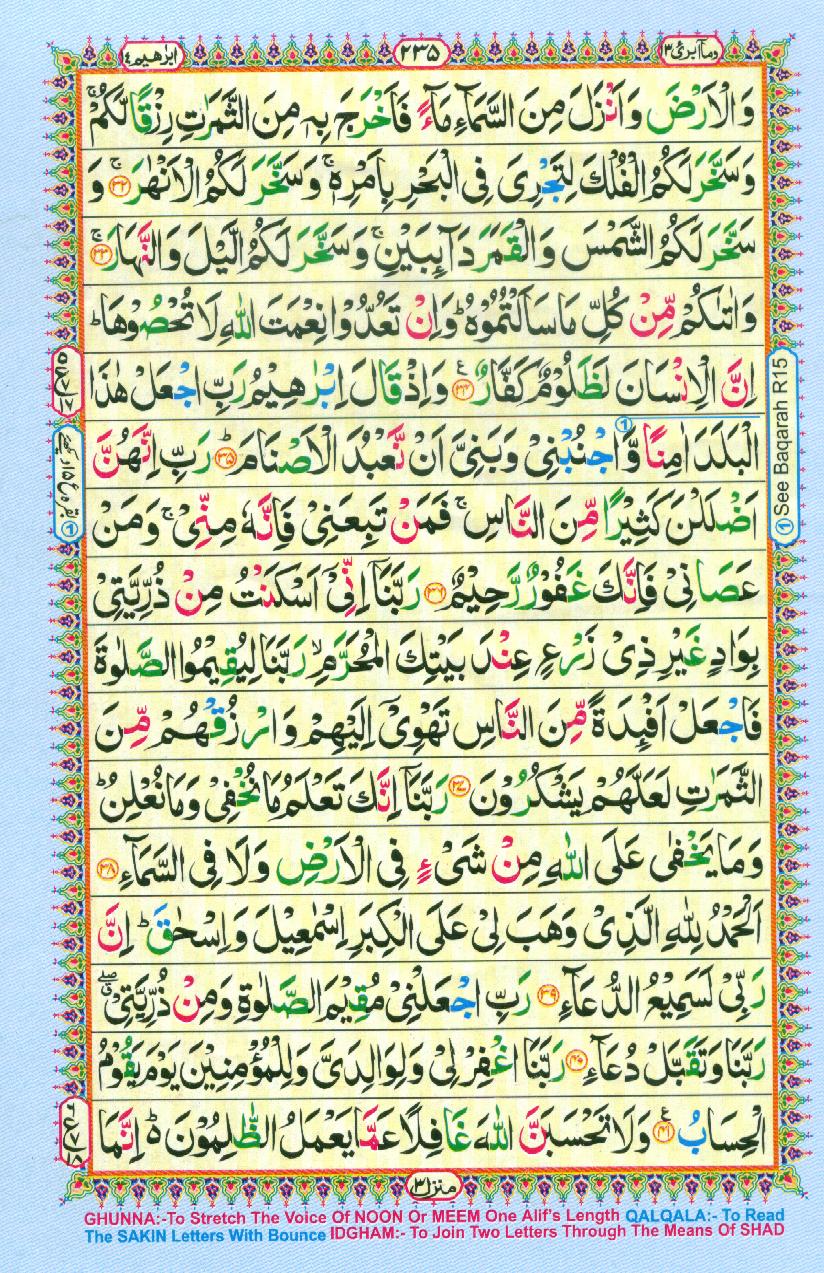 ابرٰهیم ۱۴
۲۳۵
ومآ ابرئ ۱۳
وَالْاَرْضَ وَاَنْزَلَ مِنَ السَّمَآءِ مَآءً فَاَخْرَجَ بِهٖ مِنَ الثَّمَرٰتِ رِزْقًا لَّكُمْ ۚ
وَسَخَّرَ لَكُمُ الْفُلْكَ لِتَجْرِیَ فِی الْبَحْرِ بِاَمْرِهٖ ۚ وَسَخَّرَ لَكُمُ الْاَنْهٰرَ ۚ ﴿۳۲﴾ وَ
سَخَّرَ لَكُمُ الشَّمْسَ وَالْقَمَرَ دَآىِٕبَیْنِ ۚ وَسَخَّرَ لَكُمُ الَّیْلَ وَالنَّهَارَ ۚ ﴿۳۳﴾
وَاٰتٰىكُمْ مِّنْ كُلِّ مَا سَاَلْتُمُوْهُ ؕ وَاِنْ تَعُدُّوْا نِعْمَتَ اللّٰهِ لَا تُحْصُوْهَا ؕ
اِنَّ الْاِنْسَانَ لَظَلُوْمٌ كَفَّارٌ ﴿۳۴﴾ ع وَاِذْ قَالَ اِبْرٰهِیْمُ رَبِّ اجْعَلْ هٰذَا
الْبَلَدَ اٰمِنًا وَّاجْنُبْنِیْ وَبَنِیَّ اَنْ نَّعْبُدَ الْاَصْنَامَ ؕ ﴿۳۵﴾ رَبِّ اِنَّهُنَّ
اَضْلَلْنَ كَثِیْرًا مِّنَ النَّاسِ ۚ فَمَنْ تَبِعَنِیْ فَاِنَّهٗ مِنِّیْ ۚ وَمَنْ
عَصَانِیْ فَاِنَّكَ غَفُوْرٌ رَّحِیْمٌ ﴿۳۶﴾ رَبَّنَاۤ اِنِّیْۤ اَسْكَنْتُ مِنْ ذُرِّیَّتِیْ
بِوَادٍ غَیْرِ ذِیْ زَرْعٍ عِنْدَ بَیْتِكَ الْمُحَرَّمِ ۙ رَبَّنَا لِیُقِیْمُوا الصَّلٰوةَ
فَاجْعَلْ اَفْىِٕدَةً مِّنَ النَّاسِ تَهْوِیْۤ اِلَیْهِمْ وَارْزُقْهُمْ مِّنَ
الثَّمَرٰتِ لَعَلَّهُمْ یَشْكُرُوْنَ ﴿۳۷﴾ رَبَّنَاۤ اِنَّكَ تَعْلَمُ مَا نُخْفِیْ وَمَا نُعْلِنُ ؕ
وَمَا یَخْفٰى عَلَى اللّٰهِ مِنْ شَیْءٍ فِی الْاَرْضِ وَلَا فِی السَّمَآءِ ﴿۳۸﴾
اَلْحَمْدُ لِلّٰهِ الَّذِیْ وَهَبَ لِیْ عَلَى الْكِبَرِ اِسْمٰعِیْلَ وَاِسْحٰقَ ؕ اِنَّ
رَبِّیْ لَسَمِیْعُ الدُّعَآءِ ﴿۳۹﴾ رَبِّ اجْعَلْنِیْ مُقِیْمَ الصَّلٰوةِ وَمِنْ ذُرِّیَّتِیْ ۖۗ
رَبَّنَا وَتَقَبَّلْ دُعَآءِ ﴿۴۰﴾ رَبَّنَا اغْفِرْ لِیْ وَلِوَالِدَیَّ وَلِلْمُؤْمِنِیْنَ یَوْمَ یَقُوْمُ
الْحِسَابُ ﴿۴۱﴾ ع وَلَا تَحْسَبَنَّ اللّٰهَ غَافِلًا عَمَّا یَعْمَلُ الظّٰلِمُوْنَ ؕ۬ اِنَّمَا
① See Baqarah R15
منزل ۳
GHUNNA:-To Stretch The Voice Of NOON Or MEEM One Alif's Length QALQALA:- To Read
The SAKIN Letters With Bounce IDGHAM:- To Join Two Letters Through The Means Of SHAD